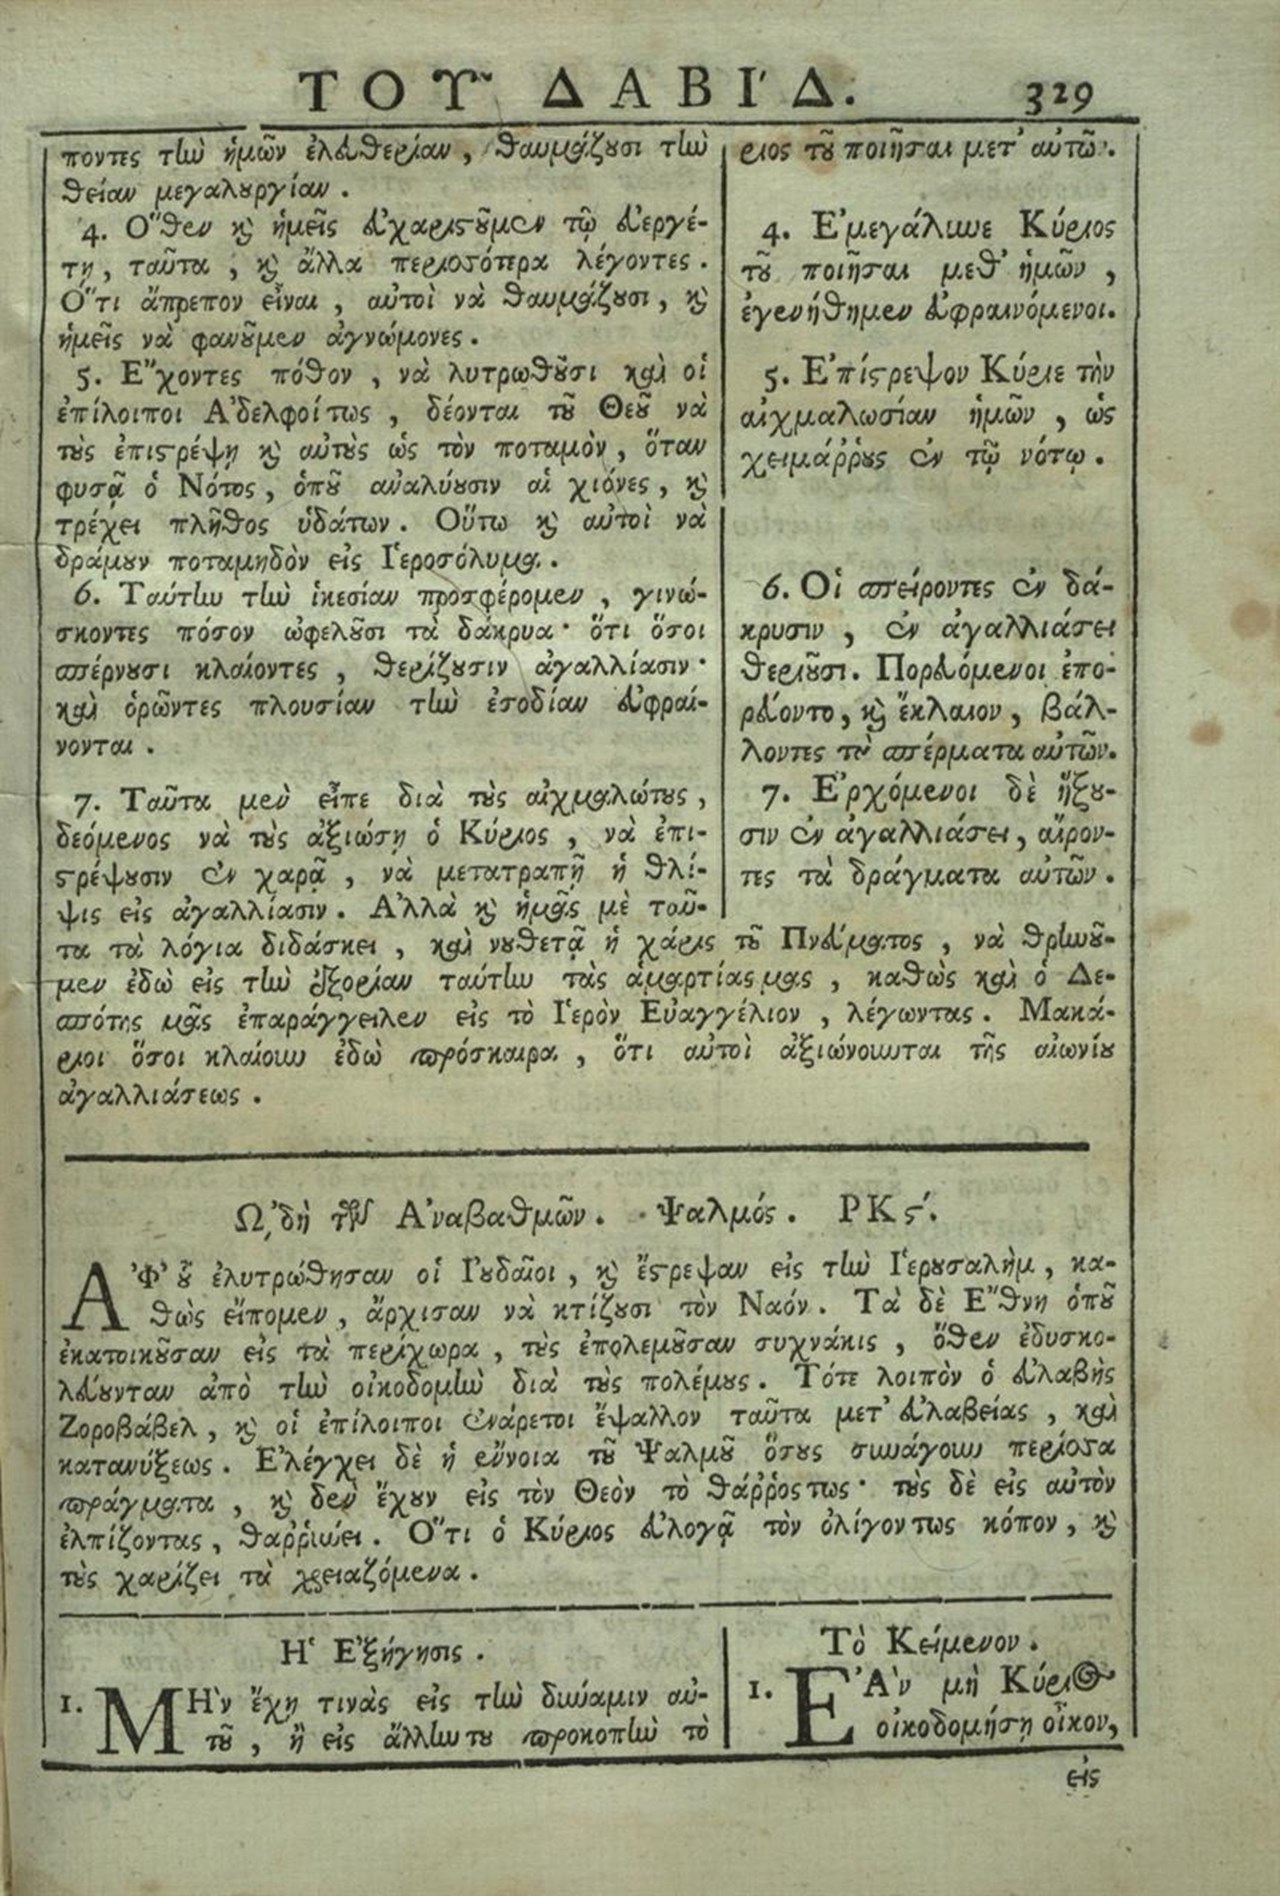 ΤΟΥ͂ ΔΑΒΙ´Δ. 329
ποντες τὴν ἡμῶν ἐλευθερίαν, θαυμάζουσι τὴν
θείαν μεγαλουργίαν.
4. Ὅθεν καὶ ἡμεῖς εὐχαριστοῦμεν τῷ εὐεργέ-
τῃ, ταῦτα, καὶ ἄλλα περισσότερα λέγοντες.
Ὅτι ἄπρεπον εἶναι, αὐτοὶ νὰ θαυμάζουσι, καὶ
ἡμεῖς νὰ φανοῦμεν ἀγνώμονες.
5. Ἔχοντες πόθον, νὰ λυτρωθοῦσι καὶ οἱ
ἐπίλοιποι Ἀδελφοίτους, δέονται τοῦ Θεοῦ νὰ
τοὺς ἐπιστρέψῃ καὶ αὐτοὺς ὡς τὸν ποταμὸν, ὅταν
φυσᾷ ὁ Νότος, ὁποῦ ἀναλύουσιν αἱ χιόνες, καὶ
τρέχει πλῆθος ὑδάτων. Οὕτω καὶ αὐτοὶ νὰ
δράμουν ποταμηδὸν εἰς Ἱεροσόλυμα.
6. Ταύτην τὴν ἱκεσίαν προσφέρομεν, γινώ-
σκοντες πόσον ὠφελοῦσι τὰ δάκρυα· ὅτι ὅσοι
σπέρνουσι κλαίοντες, θερίζουσιν ἀγαλλίασιν·
καὶ ὁρῶντες πλουσίαν τὴν ἐσοδίαν εὐφραί-
νονται.
7. Ταῦτα μὲν εἶπε διὰ τοὺς αἰχμαλώτους,
δεόμενος νὰ τοὺς ἀξιώσῃ ὁ Κύριος, νὰ ἐπι-
στρέψουσιν ἐν χαρᾷ, νὰ μετατραπῇ ἡ θλί-
ψις εἰς ἀγαλλίασιν. Ἀλλὰ καὶ ἡμᾶς μὲ τοῦ-
τα τὰ λόγια διδάσκει, καὶ νουθετᾷ ἡ χάρις τοῦ Πνεύματος, νὰ θρηνοῦ-
μεν ἐδὼ εἰς τὴν ἐξορίαν ταύτην τὰς ἁμαρτίας μας, καθὼς καὶ ὁ Δε-
σπότης μᾶς ἐπαράγγειλεν εἰς τὸ Ἱερὸν Εὐαγγέλιον, λέγωντας. Μακά-
ριοι ὅσοι κλαίουν ἐδὼ πρόσκαιρα, ὅτι αὐτοὶ ἀξιώνουνται τῆς αἰωνίου
ἀγαλλιάσεως.
ριος τοῦ ποιῆσαι μετ' αὐτῶν.
4. Ἐμεγάλυνε Κύριος
τοῦ ποιῆσαι μεθ' ἡμῶν,
ἐγενήθημεν εὐφραινόμενοι.
5. Ἐπίστρεψον Κύριε τὴν
αἰχμαλωσίαν ἡμῶν, ὡς
χειμάῤῥους ἐν τῷ νότῳ.
6. Οἱ σπείροντες ἐν δά-
κρυσιν, ἐν ἀγαλλιάσει
θεριοῦσι. Πορευόμενοι ἐπο-
ρεύοντο, καὶ ἔκλαιον, βάλ-
λοντες τὰ σπέρματα αὐτῶν.
7. Ἐρχόμενοι δὲ ἥξου-
σιν ἐν ἀγαλλιάσει, αἴρον-
τες τὰ δράγματα αὐτῶν.
Ὠδὴ τῶν Ἀναβαθμῶν. Ψαλμός. ΡΚϛ´.
ἈΦ' οὗ ἐλυτρώθησαν οἱ Ἰουδαῖοι, καὶ ἔστρεψαν εἰς τὴν Ἱερουσαλὴμ, κα-
θὼς εἴπομεν, ἄρχισαν νὰ κτίζουσι τὸν Ναόν. Τὰ δὲ Ἔθνη ὁποῦ
ἐκατοικοῦσαν εἰς τὰ περίχωρα, τοὺς ἐπολεμοῦσαν συχνάκις, ὅθεν ἐδυσκο-
λεύουνταν ἀπὸ τὴν οἰκοδομὴν διὰ τοὺς πολέμους. Τότε λοιπὸν ὁ εὐλαβὴς
Ζοροβάβελ, καὶ οἱ ἐπίλοιποι ἐνάρετοι ἔψαλλον ταῦτα μετ' εὐλαβείας, καὶ
κατανύξεως. Ἐλέγχει δὲ ἡ εὔνοια τοῦ Ψαλμοῦ ὅσους συνάγουν περίσσα
πράγματα, καὶ δὲν ἔχουν εἰς τὸν Θεὸν τὸ θάῤῥος τους· τοὺς δὲ εἰς αὐτὸν
ἐλπίζοντας, θαῤῥύνει. Ὅτι ὁ Κύριος εὐλογᾷ τὸν ὀλίγον τους κόπον, καὶ
τοὺς χαρίζει τὰ χρειαζόμενα.
Ἡ Ἐξήγησις.
1. ΜῊν ἔχῃ τινὰς εἰς τὴν δύναμιν αὑ-
τοῦ, ἢ εἰς ἄλλην του προκοπὴν τὸ
Τὸ Κείμενον.
1. ἘᾺν μὴ Κύριος
οἰκοδομήσῃ οἶκον,
εἰς